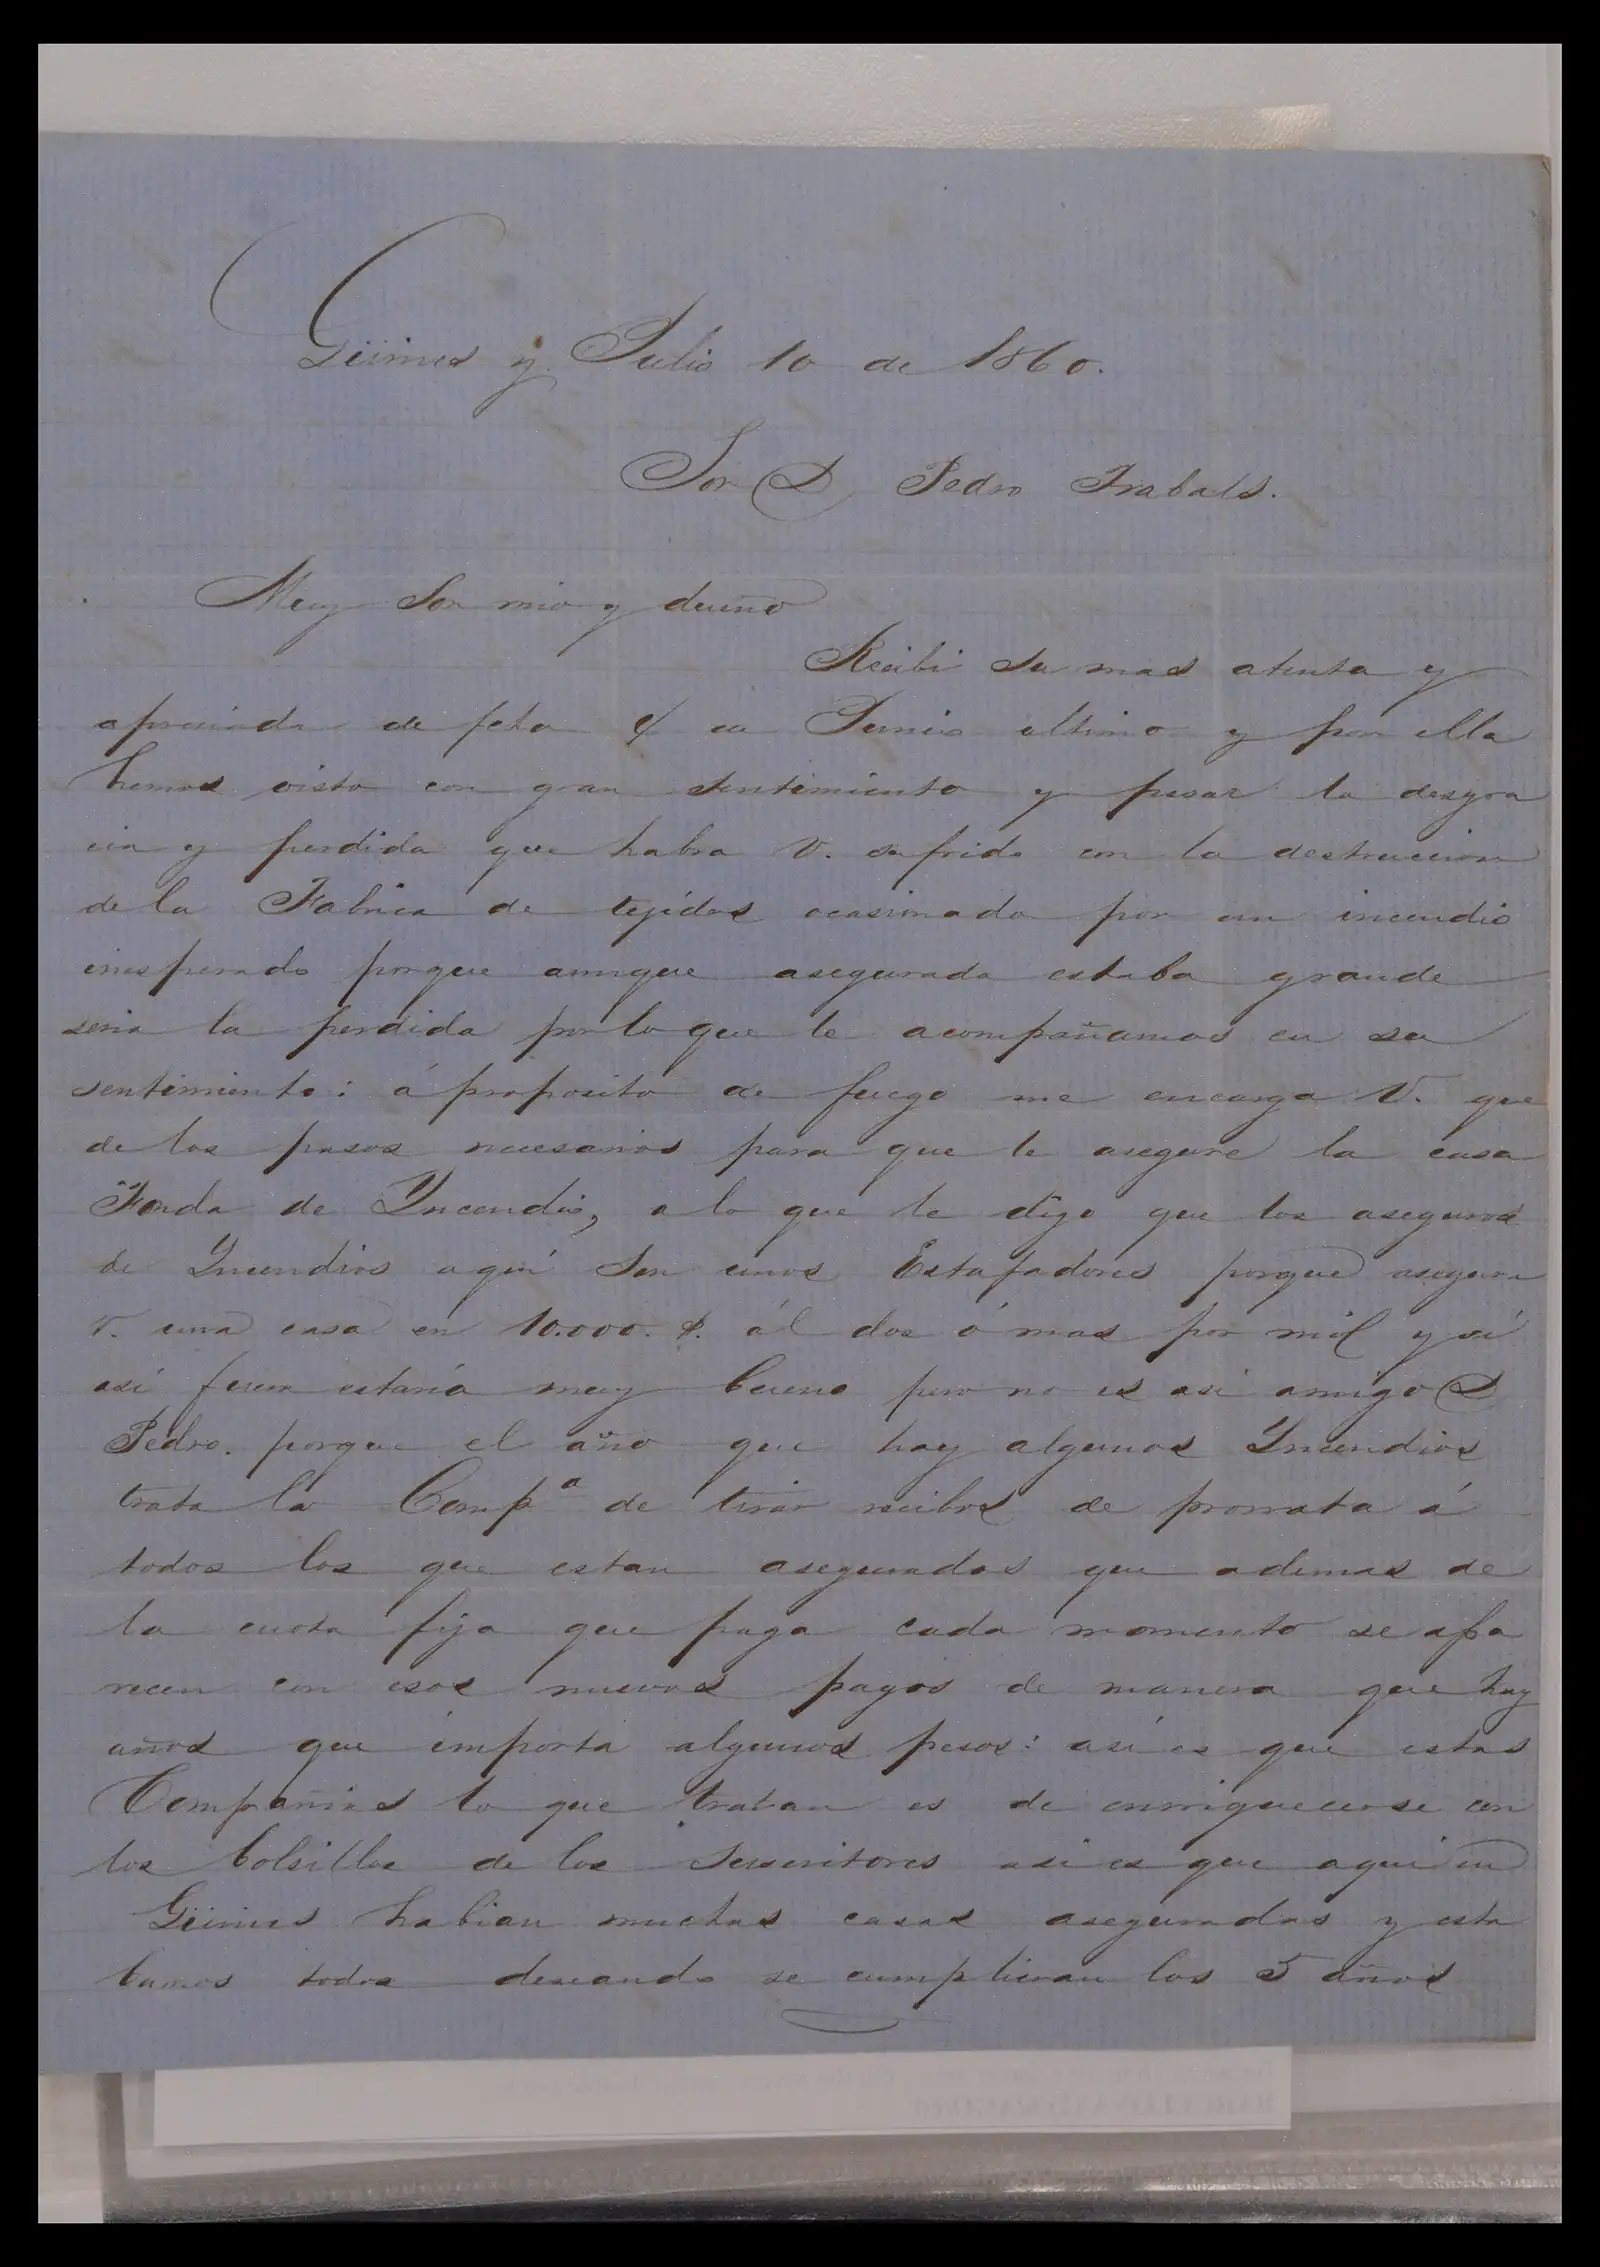 Güines y Julio 10 de 1860.
Sor D Pedro Trabals.
Muy Sor mio y dueño
Recibi su mas atenta y
apreciada de fcha de Junio ultimo y por ella
hemos visto con gran sentimiento y pesar la desgra
cia y perdida que habra V. sufrido con la destruccion
de la Fabrica de tejidos ocasionada por un incendio
inesperado porque aunque asegurada estaba grande
seria la perdida por lo que le acompañamos en su
sentimiento: á proposito de fuego me encarga V. que
de los pasos necesarios para que le asegure la casa
Fonda de Yncendio, a lo que le digo que los aseguros
de Yncendios aquí son unos Estafadores porque asegura
V. una casa en 10.000. $. ál dos ó mas por mil y si
así fuera estaria muy bueno pero no es asi amigo D
Pedro. porque el año que hay algunos Yncendios
trata la Compª de tirar recibos de prorrata á
todos los que estan asegurados que ademas de
la cuota fija que paga cada momento se apa
recen con esos nuevos pagos de manera que hay
años que importa algunos pesos: así es que estas
Compañias lo que tratan es de enrriquecerse con
los bolsillos de los suscritores asi es que aqui en
Güines habian muchas casas aseguradas y esta
bamos todos deseando se cumplieran los 5 años